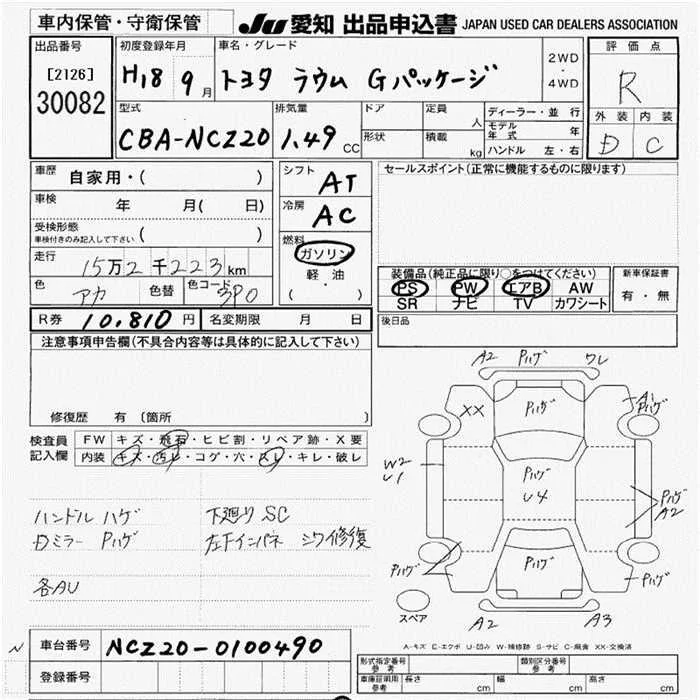 車内保管・守衛保管 JU 愛知 出品申込書 JAPAN USED CAR DEALERS ASSOCIATION
出品番号 初度登録年月 車名・グレード 評価点
[2126] H18 9月 トヨタ ラウム Gパッケージ 2WD・4WD R
30082
型式 排気量 ドア 定員 人 ディーラー・並行 外装 内装
CBA-NCZ20 1.49 CC 形状 積載 kg モデル年式 年 D C
ハンドル 左・右
車歴 自家用・( ) シフト AT セールスポイント(正常に機能するものに限ります)
車検 年 月( 日) 冷房 AC
受検形態
車検付きのみ記入して下さい ( )
燃料 ガソリン
走行 15万2千223km 軽油
装備品(純正品に限り○をつけてください) 新車保証書
色 アカ 色替 色コード 3P0 ( ・ )
PS PW エアB AW 有・無
SR ナビ TV カワシート
R券 10,810円 名変期限 月 日 後日品
注意事項申告欄(不具合内容等は具体的に記入して下さい)
修復歴 有 〔箇所 〕
検査員記入欄 FW キズ・飛石・ヒビ割・リペア跡・X要
内装 キズ・汚レ・コゲ・穴・スレ・キレ・破レ
ハンドル ハゲ 下廻り SC
Dミラー Pハゲ 左下インパネ シワ修復
各AU
A2 ワレ
XX Pハゲ A1 Pハゲ
W2
U1 Pハゲ
U4 Pハゲ
A2
Pハゲ Pハゲ Pハゲ
スペア A2 A3
車台番号 NCZ20-0100490
A-キズ E-エクボ U-凹み W-補修跡 S-サビ C-腐食 XX-交換済
登録番号
形式指定番号 参考 類別区分番号 参考
車庫証明用 参考 長さ cm 幅 cm 高さ cm